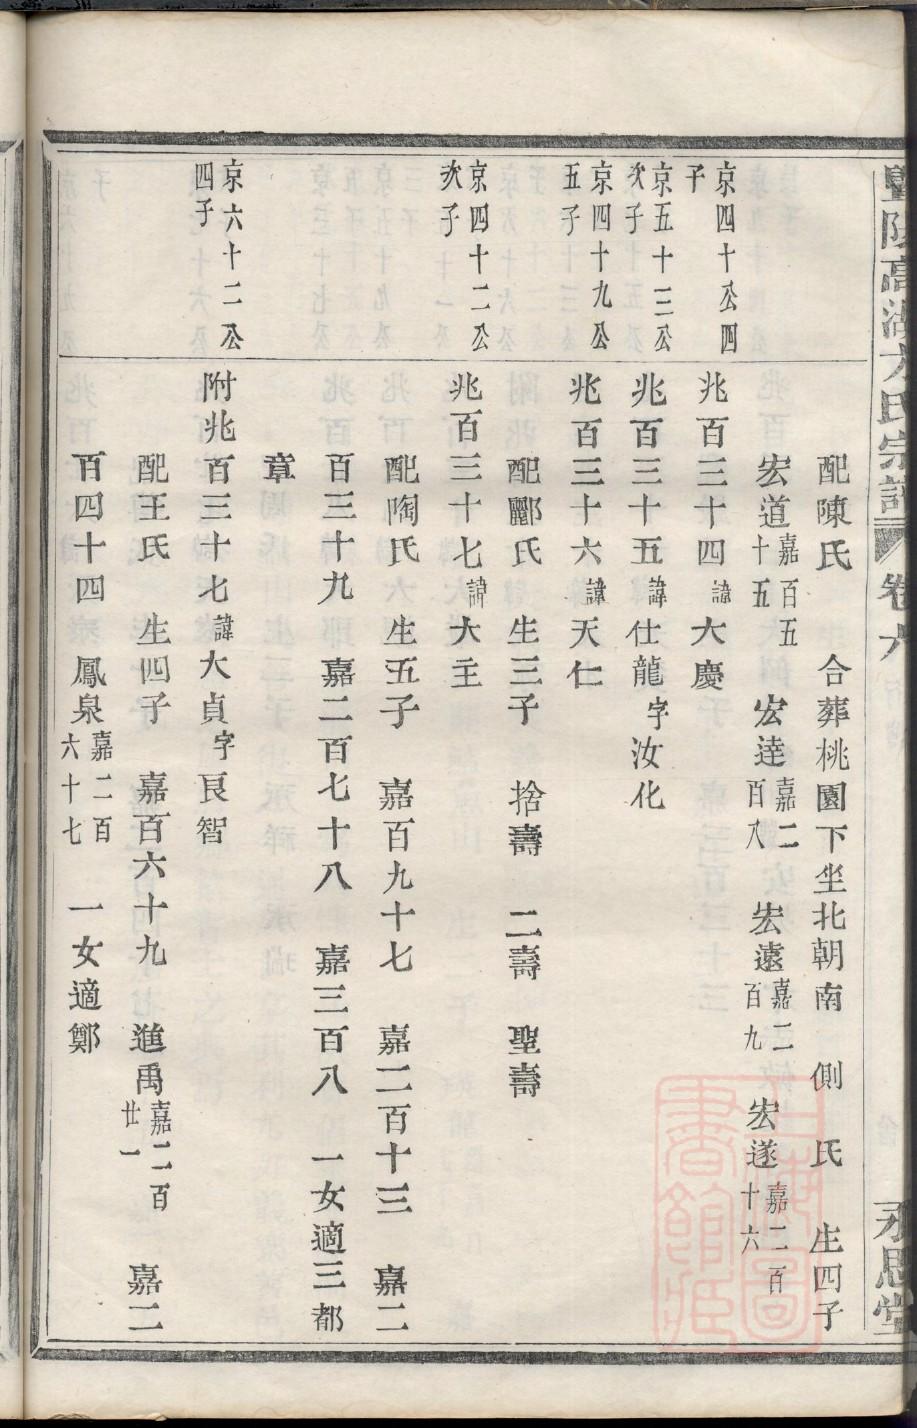 暨陽高湖方氏宗譜 卷六 永思堂
配陳氏 合葬桃園下坐北朝南 側 氏 生四子
宏道嘉百五十五 宏達嘉二百八 宏遠嘉二百九 宏遂嘉二百十六
京四十公四子
兆百三十四諱大慶
京五十三公次子
兆百三十五諱仕龍字汝化
京四十九公五子
兆百三十六諱天仁
配酈氏 生三子 捨壽 二壽 聖壽
京四十二公次子
兆百三十七諱大主
配陶氏 生五子 嘉百九十七 嘉二百十三 嘉二
百三十九 嘉二百七十八 嘉三百八 一女適三都
章
京六十二公四子
附兆百三十七諱大貞字良智
配王氏 生四子 嘉百六十九 進禹嘉二百廿一 嘉二
百四十四 鳳泉嘉二百六十七 一女適鄭